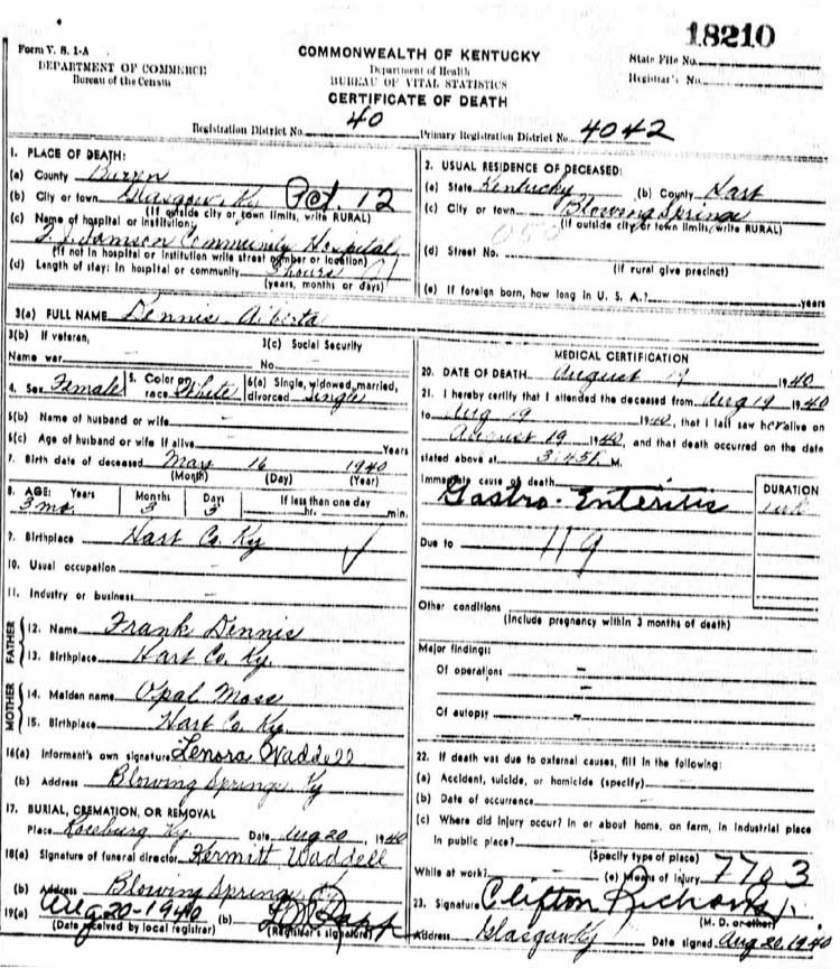 18210
Form V. S. 1-A
DEPARTMENT OF COMMERCE
Bureau of the Census
COMMONWEALTH OF KENTUCKY
Department of Health
BUREAU OF VITAL STATISTICS
CERTIFICATE OF DEATH
State File No.
Registrar's No.
Registration District No. 40
Primary Registration District No. 4042
1. PLACE OF DEATH:
(a) County Barren
(b) City or town Glasgow, Ky Pct. 12
(If outside city or town limits, write RURAL)
(c) Name of hospital or institution:
Community Hospital
(If not in hospital or institution write street number or location)
(d) Length of stay: In hospital or community hours
(years, months or days)
2. USUAL RESIDENCE OF DECEASED:
(a) State Kentucky (b) County Hart
(c) City or town Blowing Springs
(If outside city or town limits, write RURAL)
(d) Street No.
(If rural give precinct)
(e) If foreign born, how long in U. S. A.? years
3(a) FULL NAME Dennis Alberta
3(b) If veteran,
Name war
3(c) Social Security
No.
4. Sex Female 5. Color or race White 6(a) Single, widowed, married, divorced Single
6(b) Name of husband or wife
6(c) Age of husband or wife if alive Years
7. Birth date of deceased May 16 1940
(Month) (Day) (Year)
8. AGE: Years Months Days If less than one day
3 mo. 3 3 hr. min.
9. Birthplace Hart Co. Ky
10. Usual occupation
11. Industry or business
FATHER
12. Name Frank Dennis
13. Birthplace Hart Co. Ky.
MOTHER
14. Maiden name Opal Moss
15. Birthplace Hart Co. Ky
16(a) Informant's own signature Lenora Waddell
(b) Address Blowing Springs Ky
17. BURIAL, CREMATION, OR REMOVAL
Place Roseburg Ky. Date Aug 20, 1940
18(a) Signature of funeral director Kermitt Waddell
(b) Address Blowing Springs
19(a) Aug 20-1940 (b)
(Date received by local registrar) (Registrar's signature)
MEDICAL CERTIFICATION
20. DATE OF DEATH August 19 1940
21. I hereby certify that I attended the deceased from Aug 19 1940
to Aug 19 1940, that I last saw her alive on
August 19 1940, and that death occurred on the date
stated above at 3:45 M.
Immediate cause of death
Gastro-Enteritis
DURATION
Due to 119
Other conditions
(Include pregnancy within 3 months of death)
Major findings:
Of operations
Of autopsy
22. If death was due to external causes, fill in the following:
(a) Accident, suicide, or homicide (specify)
(b) Date of occurrence
(c) Where did injury occur? In or about home, on farm, in industrial place
in public place?
(Specify type of place)
While at work? (e) Means of injury 7703
23. Signature Clifton Richards
(M. D. or other)
Address Glasgow Ky Date signed Aug 20, 1940